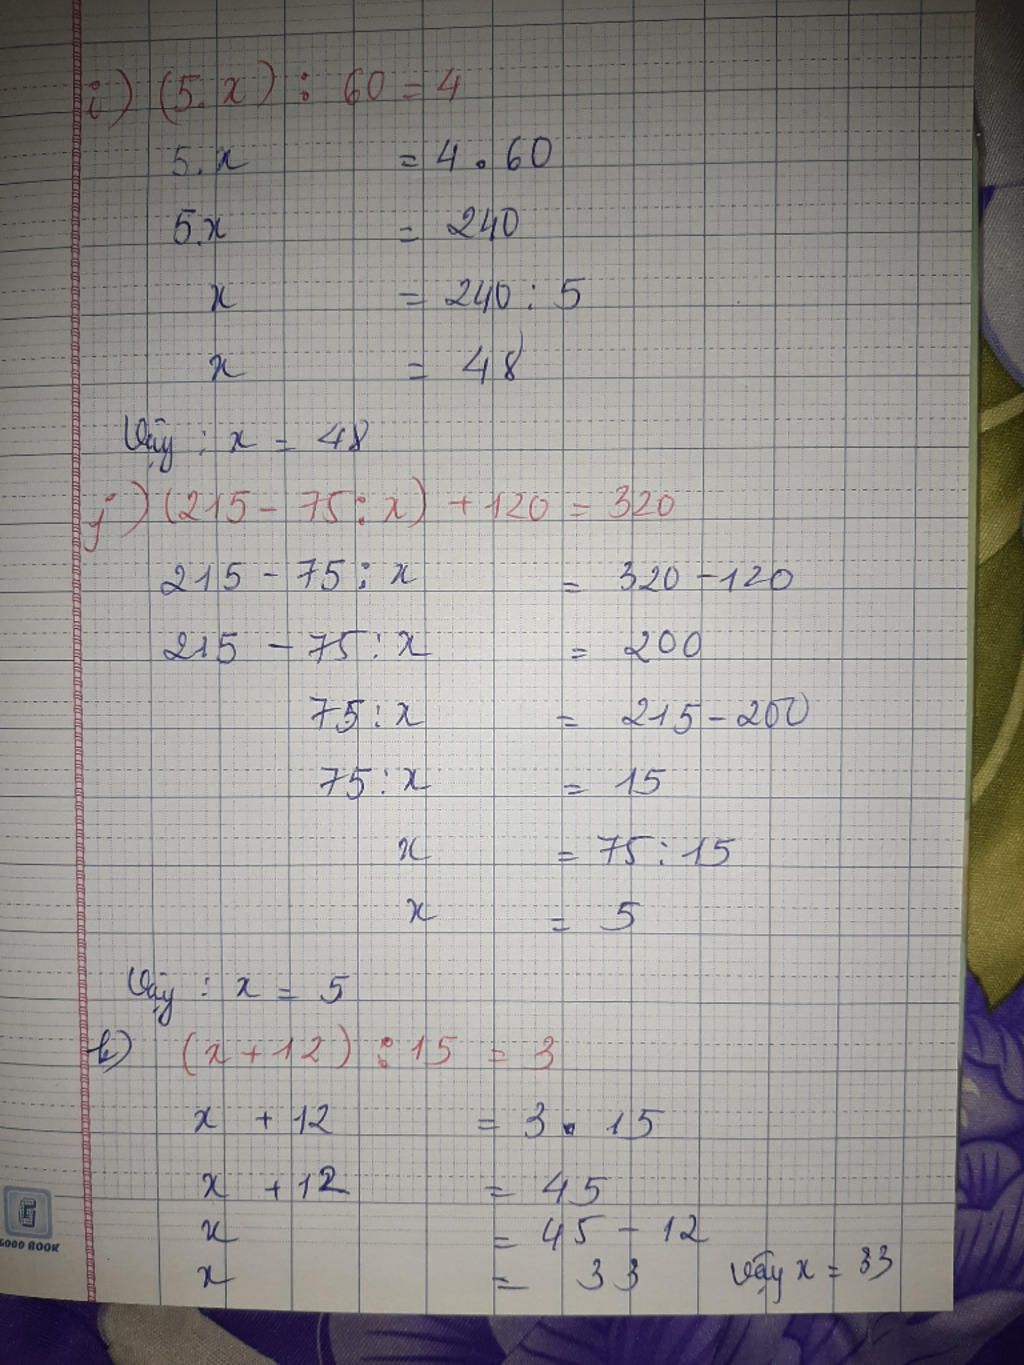 i) (5.x) : 60 = 4
5.x = 4.60
5.x = 240
x = 240 : 5
x = 48
Vậy : x = 48
j) (215 - 75 : x) + 120 = 320
215 - 75 : x = 320 - 120
215 - 75 : x = 200
75 : x = 215 - 200
75 : x = 15
x = 75 : 15
x = 5
Vậy : x = 5
k) (x + 12) : 15 = 3
x + 12 = 3 . 15
x + 12 = 45
x = 45 - 12
x = 33 Vậy x = 33
G
GOOD BOOK